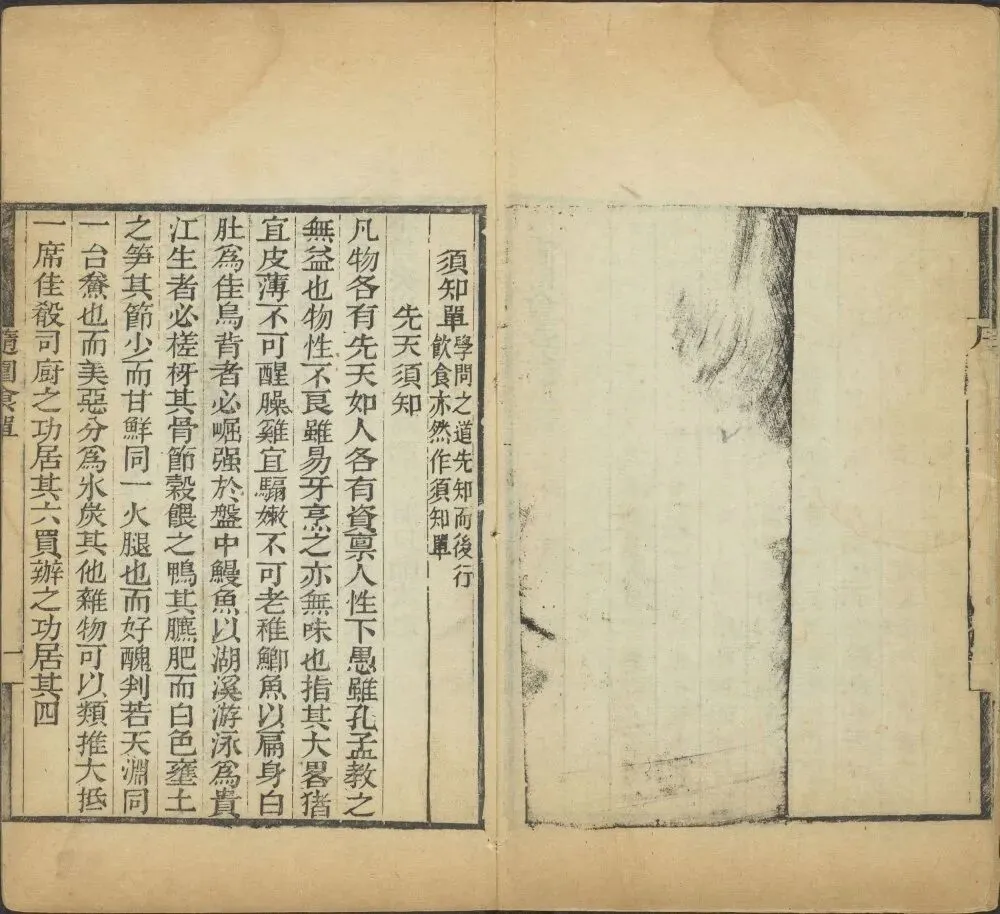 須知單
學問之道先知而後行
飲食亦然作須知單
先天須知
凡物各有先天如人各有資禀人性下愚雖孔孟教之
無益也物性不良雖易牙烹之亦無味也指其大畧猪
宜皮薄不可醒臊雞宜騸嫩不可老稚鯽魚以扁身白
肚爲佳烏背者必崛强於盤中鰻魚以湖溪游泳爲貴
江生者必槎枒其骨節榖餵之鴨其膘肥而白色壅土
之笋其節少而甘鮮同一火腿也而好醜判若天淵同
一台鯗也而美惡分爲氷炭其他雜物可以類推大抵
一席佳殽司厨之功居其六買辦之功居其四
隨園食單
一